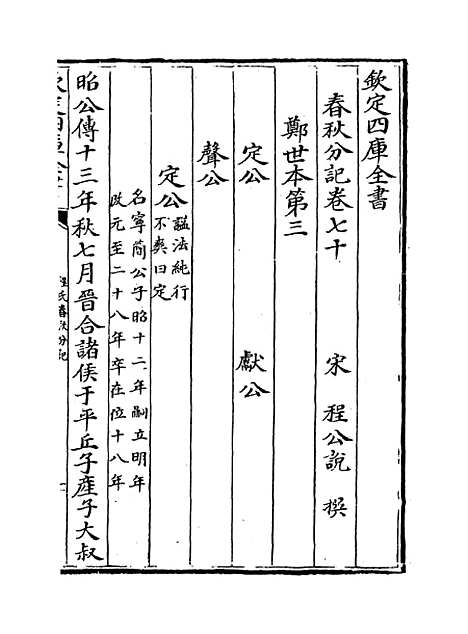 欽定四庫全書
春秋分記卷七十
宋 程公說 撰
鄭世本第三
定公 獻公
聲公
定公 諡法純行不爽曰定
名寧簡公子昭十二年嗣立明年
改元至二十八年卒在位十八年
昭公傳十三年秋七月晉合諸侯于平丘子產子大叔